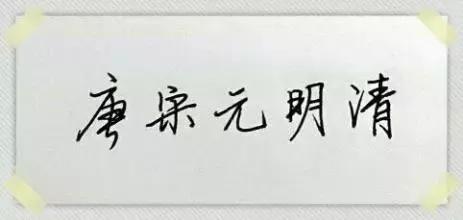 唐宗元明清